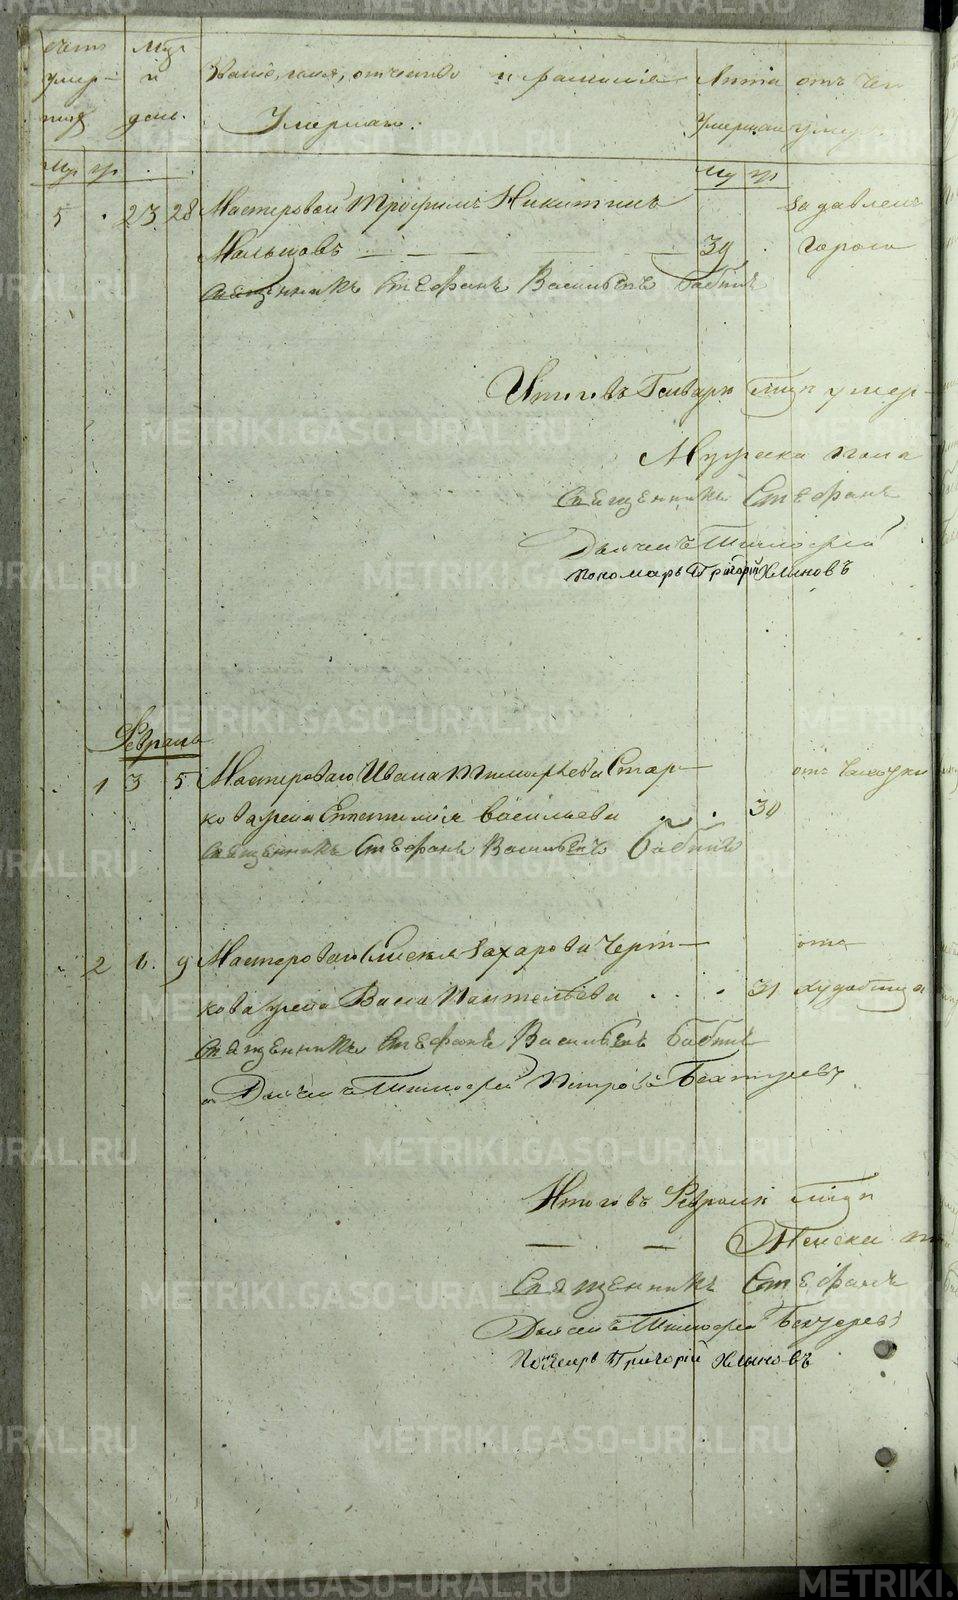 счетъ
умер-
шихъ
Мцъ
и
день.
Званіе, имя, отчество и фамилія
Умершаго.
Лѣта
Умершаго
отъ чего
умеръ
му же
му же
5 . 23 28 Мастеровой Трофимъ Никитинъ задавленъ
Мальцовъ 39 . горою
Священникъ Стефанъ Васильевъ Бабинъ
Итого въ Генварѣ мцѣ умер-
Мужеска пола
Священникъ Стефанъ
Дьячекъ Тимофей
Пономарь Григорій Хлыновъ
Февраль
1 3 5 Мастероваго Ивана Тимофѣева Стар- отъ чахотки
кова жена Евтихія Васильева . . 39
Священникъ Стефанъ Васильевъ Бабинъ
2 6. 9 Мастероваго Елисея Захарова Черт- отъ
кова жена Васса Пантелѣева . . 31 худобища
Священникъ Стефанъ Васильевъ Бабинъ
Дьячекъ Тимофей Петровъ Бехтеревъ
Итого въ Февралѣ мцѣ
Женска
Священникъ Стефанъ
Дьячекъ Тимофей Бехтеревъ
Пономарь Григорій Хлыновъ
METRIKI.GASO-URAL.RU